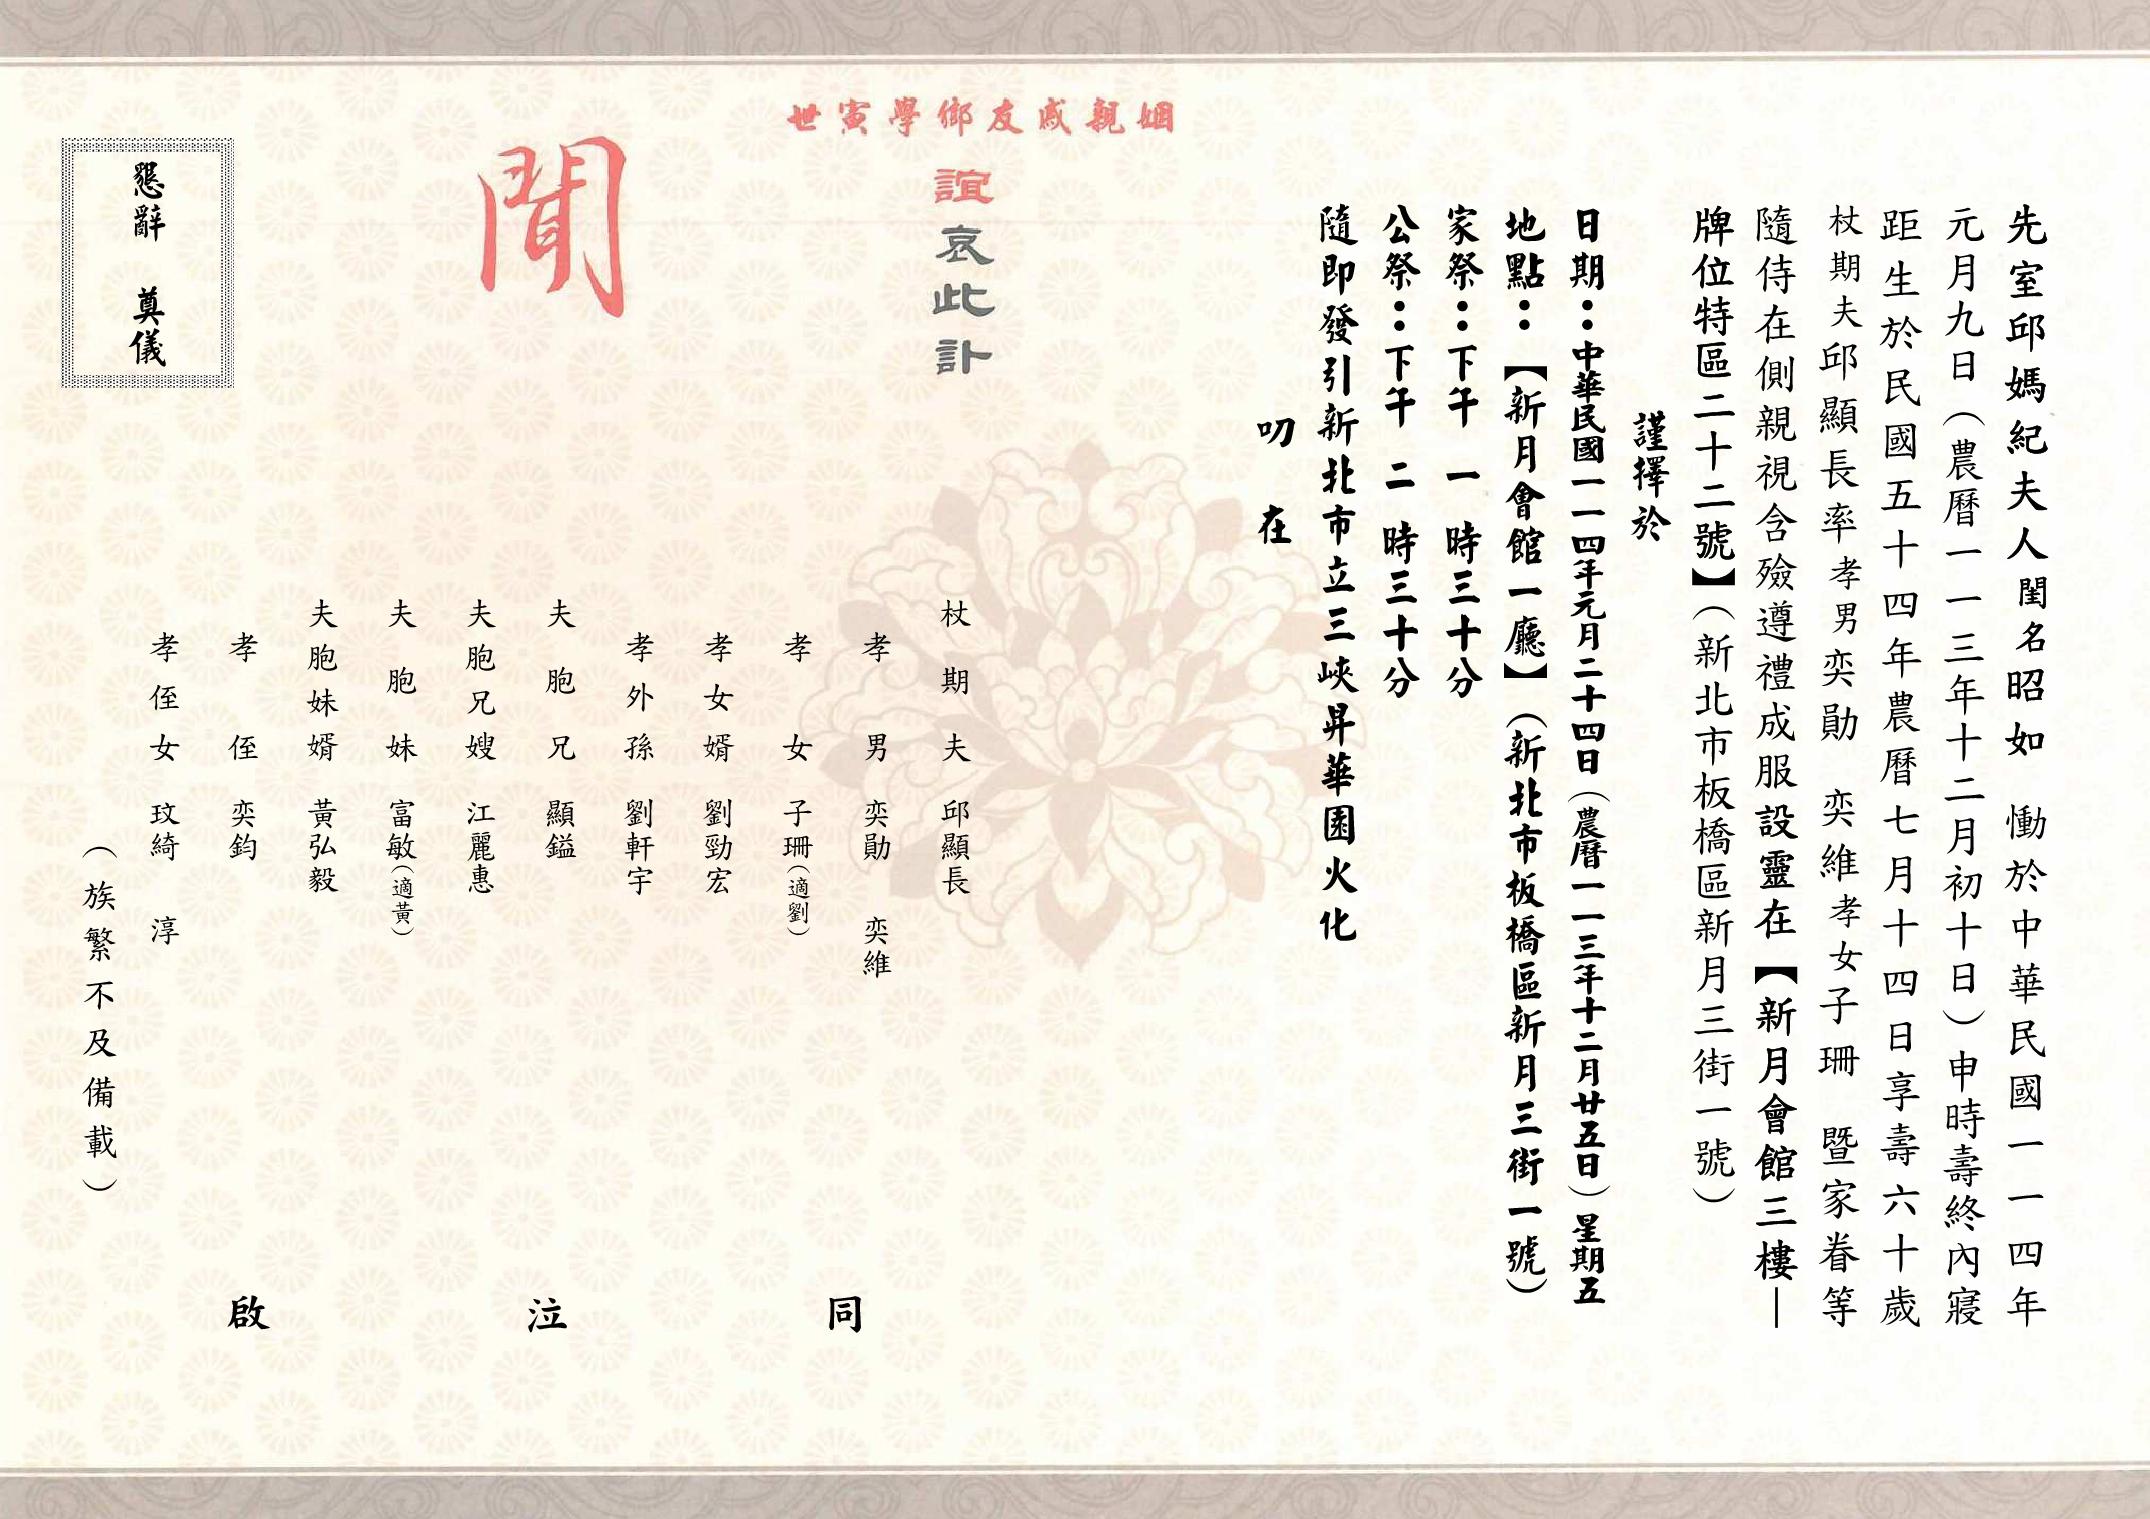 先室邱媽紀夫人閨名昭如　慟於中華民國一一四年
元月九日（農曆一一三年十二月初十日）申時壽終內寢
距生於民國五十四年農曆七月十四日享壽六十歲
杖期夫邱顯長率孝男奕勛　奕維孝女子珊　暨家眷等
隨侍在側親視含殮遵禮成服設靈在【新月會館三樓—
牌位特區二十二號】（新北市板橋區新月三街一號）
謹擇於
日期：中華民國一一四年元月二十四日（農曆一一三年十二月廿五日）星期五
地點：【新月會館一廳】（新北市板橋區新月三街一號）
家祭：下午 一 時三十分
公祭：下午 二 時三十分
隨即發引新北市立三峽昇華園火化
叨　在
姻親戚友鄉學寅世
誼哀此訃
聞
杖期夫　邱顯長
孝男　奕勛　奕維
孝女　子珊（適劉）
孝女婿　劉勁宏
孝外孫　劉軒宇
夫胞兄　顯鎰
夫胞兄嫂　江麗惠
夫胞妹　富敏（適黃）
夫胞妹婿　黃弘毅
孝侄　奕鈞
孝侄女　玟綺　淳
（族繁不及備載）
同　泣　啟
懇辭　奠儀